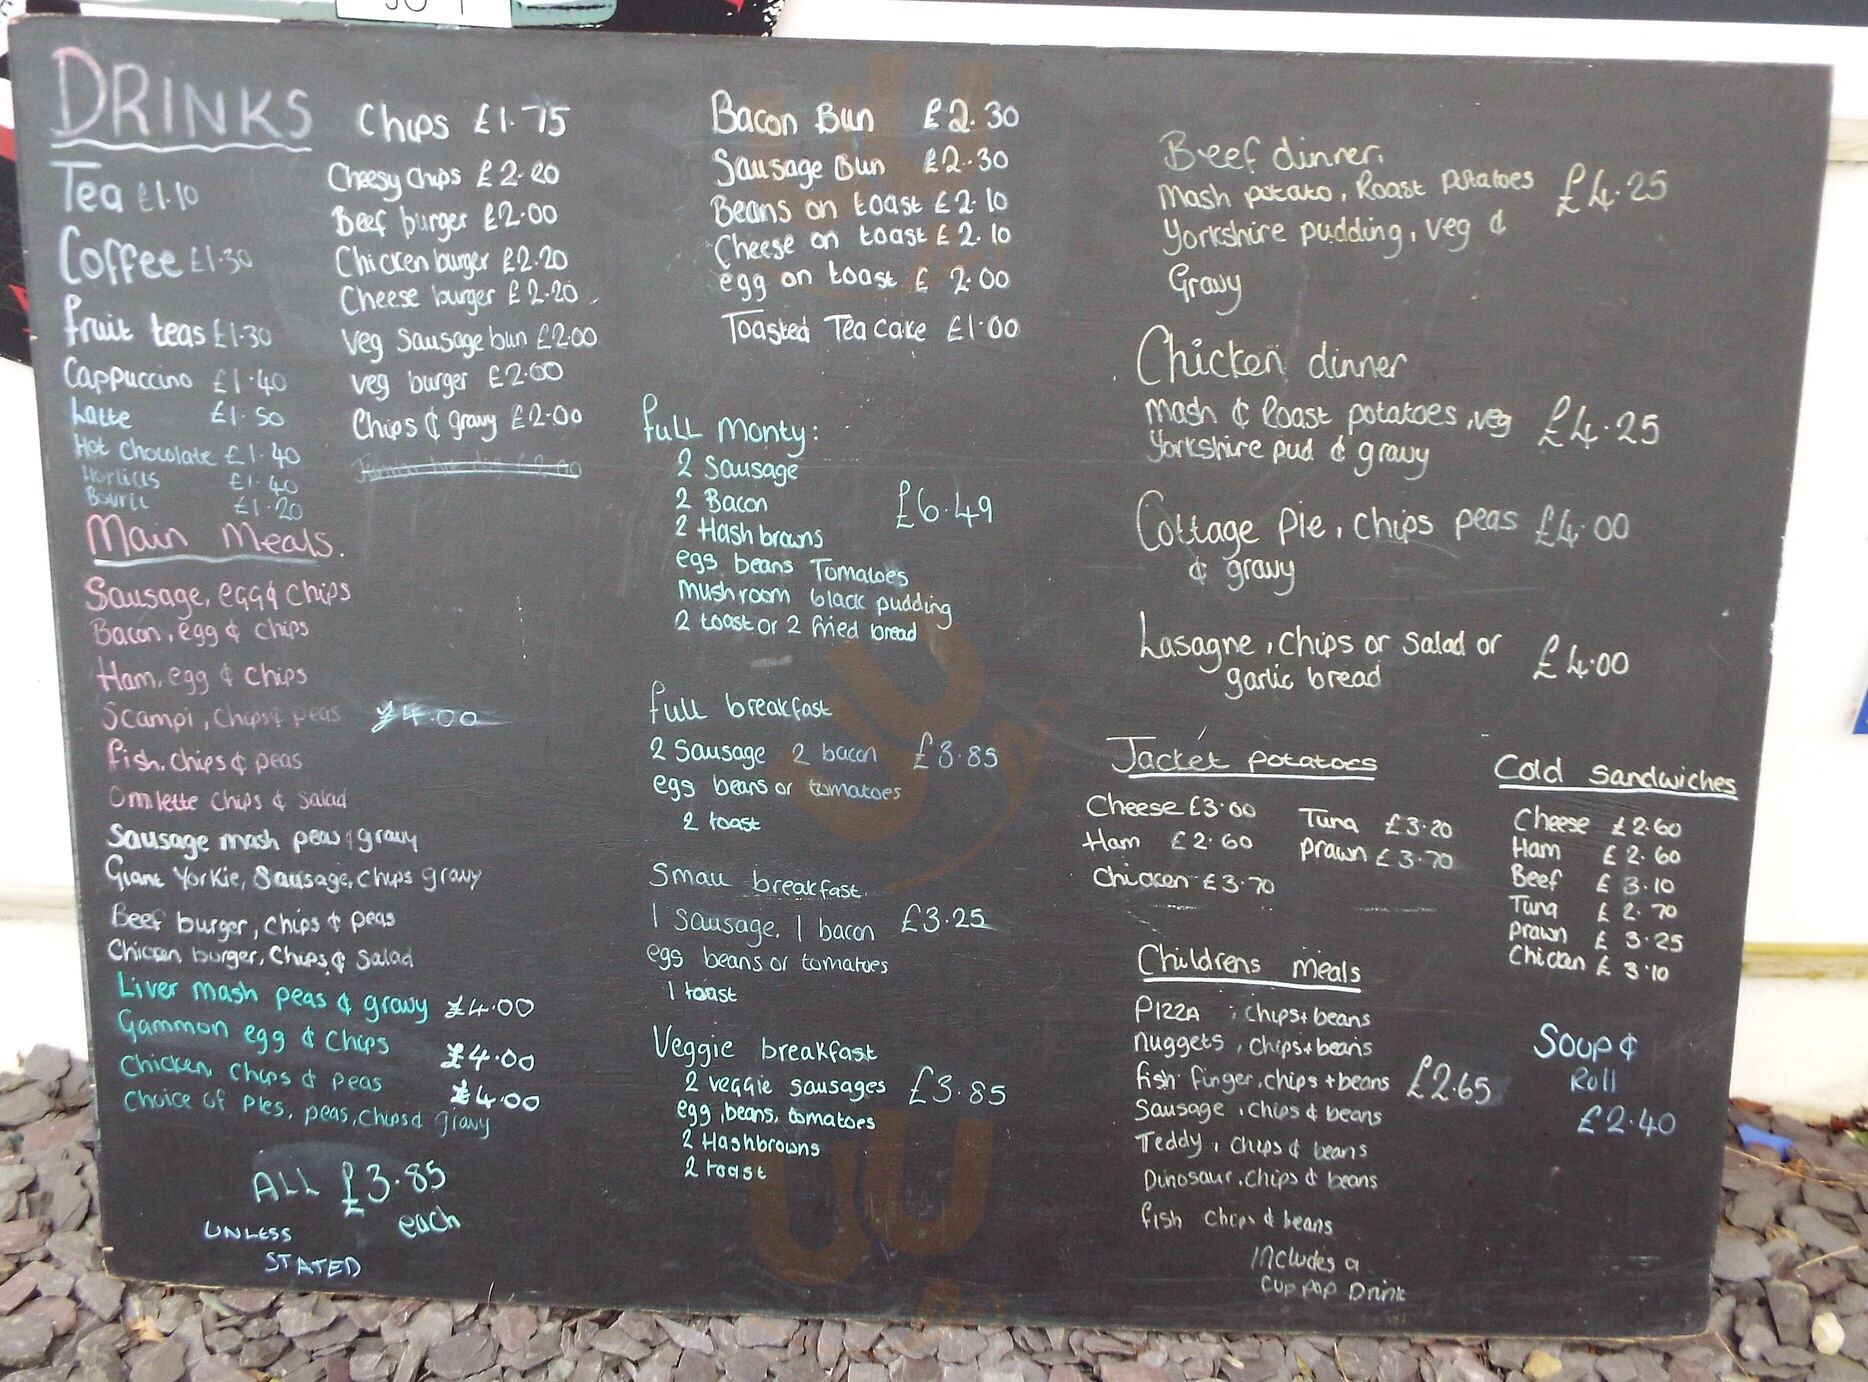 DRINKS
Tea £1.10
Coffee £1.30
fruit teas £1.30
Cappuccino £1.40
Latte £1.50
Hot Chocolate £1.40
Horlicks £1.40
Bovril £1.20
Chips £1.75
Cheesy chips £2.20
Beef burger £2.00
Chicken burger £2.20
Cheese burger £2.20
Veg sausage bun £2.00
veg burger £2.00
Chips & gravy £2.00
Main Meals.
Sausage, egg & chips
Bacon, egg & chips
Ham, egg & chips
Scampi, chips & peas £4.00
fish, chips & peas
Omlette chips & salad
Sausage mash peas & gravy
Giant Yorkie, Sausage, chips gravy
Beef burger, chips & peas
Chicken burger, Chips & salad
Liver mash peas & gravy £4.00
Gammon egg & chips £4.00
Chicken, chips & peas £4.00
Choice of Pies, peas, chips & gravy
ALL £3.85
each
UNLESS
STATED
Bacon Bun £2.30
Sausage Bun £2.30
Beans on toast £2.10
Cheese on toast £2.10
egg on toast £2.00
Toasted Tea cake £1.00
full monty:
2 Sausage
2 Bacon £6.49
2 Hash browns
egs beans Tomatoes
mushroom black pudding
2 toast or 2 fried bread
full breakfast
2 Sausage 2 bacon £3.85
egs beans or tomatoes
2 toast
Small breakfast
1 sausage, 1 bacon £3.25
egs beans or tomatoes
1 toast
Veggie breakfast
2 veggie sausages £3.85
egg, beans, tomatoes
2 Hashbrowns
2 toast
Beef dinner.
Mash potato, Roast potatoes £4.25
Yorkshire pudding, veg &
Gravy
Chicken dinner
Mash & Roast potatoes, veg £4.25
Yorkshire pud & gravy
Cottage Pie, chips peas £4.00
& gravy
Lasagne, chips or salad or £4.00
garlic bread
Jacket potatoes
Cheese £3.00
Ham £2.60
Chicken £3.70
Tuna £3.20
Prawn £3.70
Cold Sandwiches
Cheese £2.60
Ham £2.60
Beef £3.10
Tuna £2.70
Prawn £3.25
Chicken £3.10
Childrens meals
PIZZA, chips + beans
nuggets, chips + beans
fish finger, chips + beans £2.65
Sausage, chips & beans
Teddy, chips & beans
Dinosaur, chips & beans
fish chips & beans
includes a
cup pop Drink
Soup &
Roll
£2.40